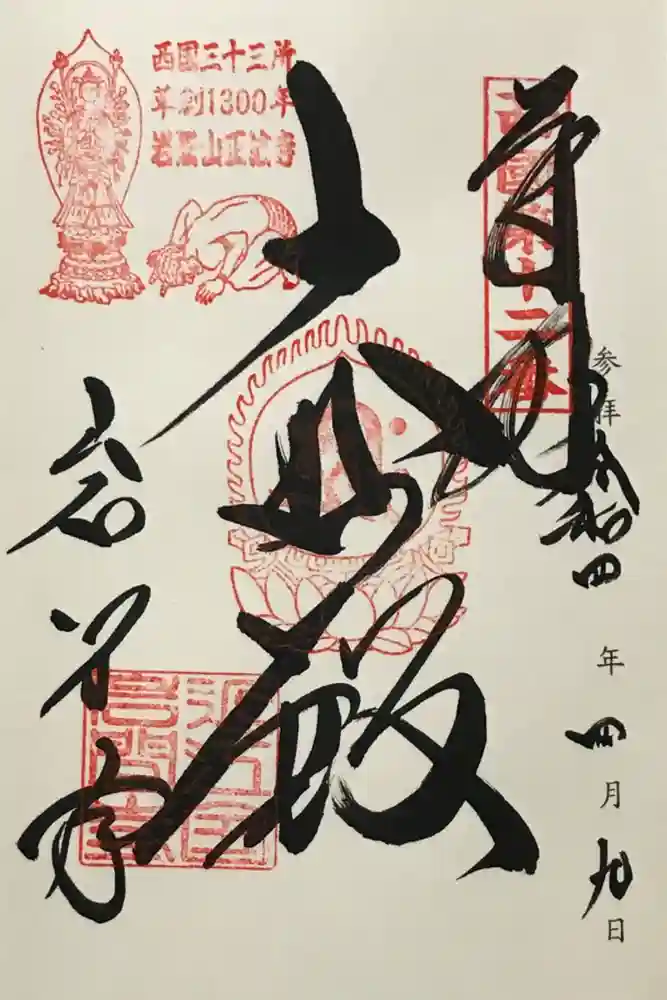 西國第十二番
奉拝
参拝 令和四年四月九日
大悲殿
西国三十三所
草創1300年
岩間山正法寺
岩間寺